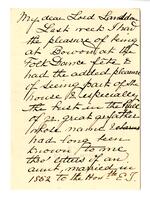 My dear Lord Lansdowne
Last week I had
the pleasure of being
at Bowood at the
Folk Dance fete &
had the added pleasure
of seeing part of the
house & especially
the bust in the Hall
of yr great grandfather
whose name
had long been
known to me
thro' letters of an
aunt, married in
1862 to the Hon